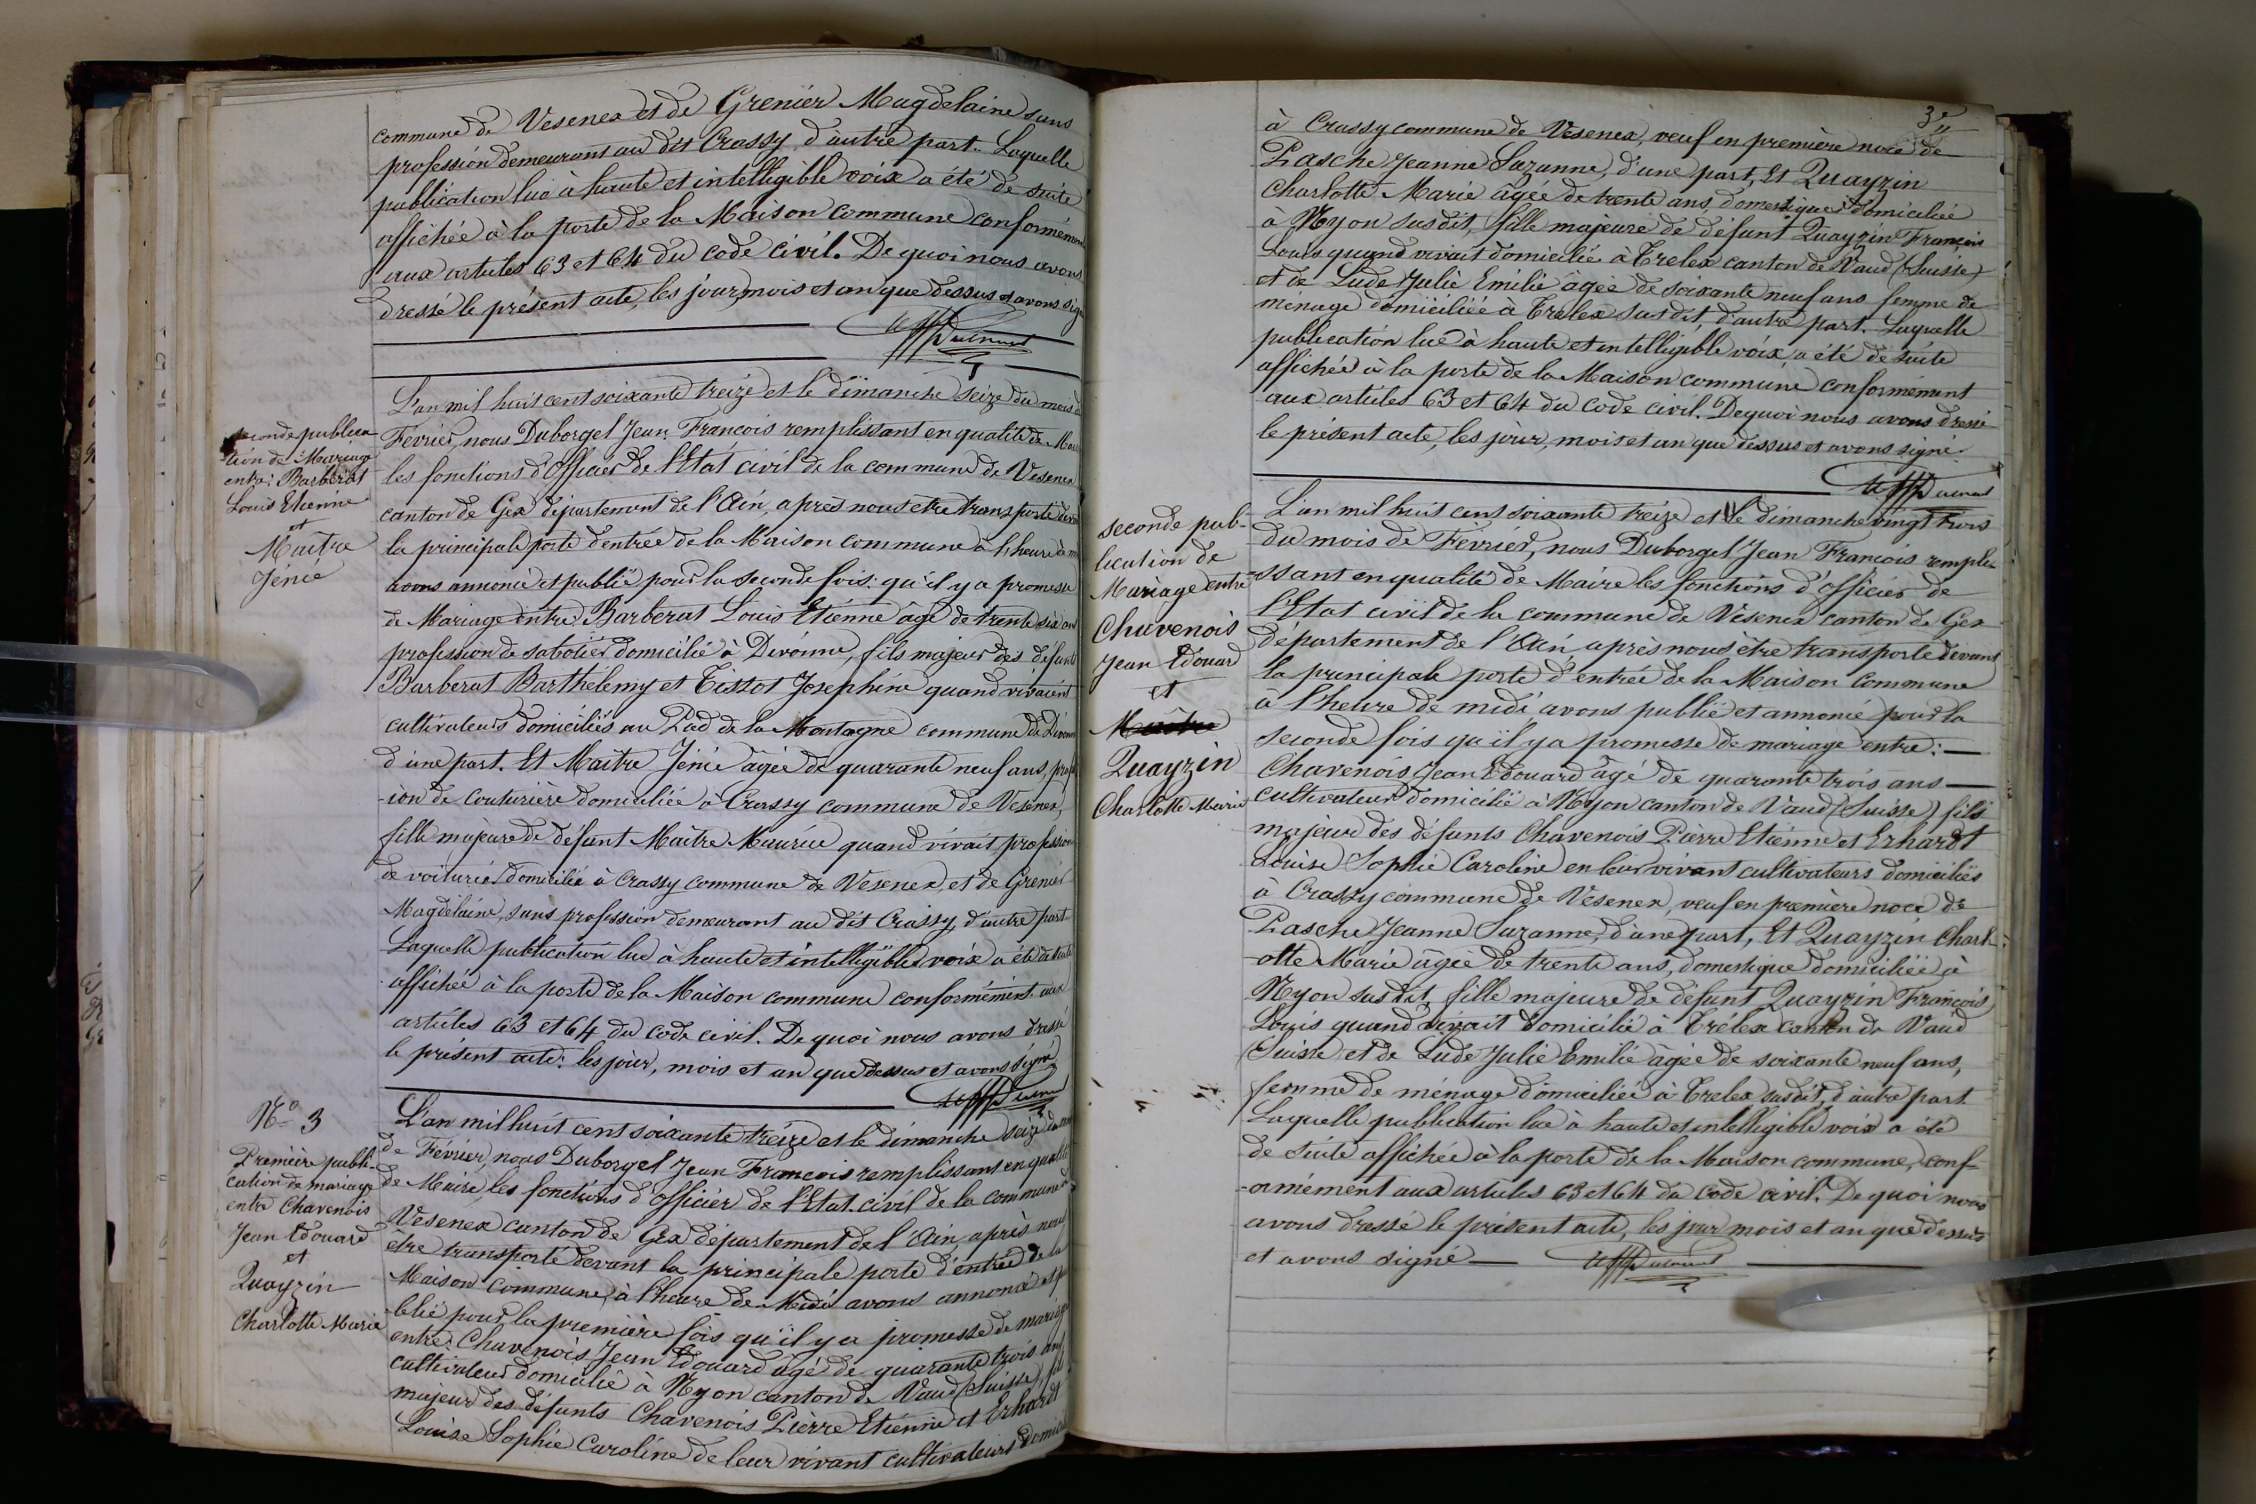 commune de Vesenex et de Grenier Magdelaine sans
profession demeurant au dit Crassy, d'autre part. Laquelle
publication lue à haute et intelligible voix a été de suite
affichée à la porte de la Maison commune conformément
aux articles 63 et 64 du code civil. De quoi nous avons
dressé le présent acte, les jour, mois et an que dessus et avons signé
seconde publica
-tion de Mariage
entre: Barberat
Louis Etienne
et
Maitre
Jénie
L'an mil huit cent soixante treize et le dimanche seize du mois de
Février, nous Duborgel Jean François remplissant en qualité de Maire
les fonctions d'Officier de l'Etat civil de la commune de Vesenex
canton de Gex département de l'Ain, après nous etre transporté devant
la principale porte d'entrée de la Maison commune à l'heure de midi
avons annoncé et publié pour la seconde fois: qu'il y a promesse
de Mariage entre Barberat Louis Etienne âgé de trente six ans
profession de sabotier domicilié à Divonne, fils majeur des défunts
Barberat Barthélemy et Tissot Josephine quand vivaient
cultivateurs domiciliés au Pad de la Montagne commune de Divonne
d'une part. Et Maitre Jénie âgée de quarante neuf ans, profess
-ion de couturière domiciliée à Crassy commune de Vesenex,
fille majeure de défunt Maître Maurice quand vivait profession
de voiturier domicilié à Crassy commune de Vesenex, et de Grenier
Magdelaine, sans profession demeurant au dit Crassy, d'autre part
Laquelle publication lue à haute et intelligible voix a été de suite
affichée à la porte de la Maison commune conformément aux
articles 63 et 64 du code civil. De quoi nous avons dressé
le présent acte: les jour, mois et an que dessus et avons signé
No 3
Première publi-
cation de mariage
entre Chavenois
Jean Edouard
et
Quayzin
Charlotte Marie
L'an mil huit cent soixante treize et le dimanche seize du mois
de Février, nous Duborgel Jean François remplissant en qualité
de Maire, les fonctions d'officier de l'Etat civil de la commune de
Vesenex canton de Gex département de l'Ain, après nous
être transporté devant la principale porte d'entrée de la
Maison commune, à l'heure de Midi avons annoncé et pu
-blié pour la première fois qu'il y a promesse de mariage
entre: Chavenois Jean Edouard âgé de quarante trois ans,
cultivateur domicilié à Nyon canton de Vaud (Suisse), fils
majeur des défunts Chavenois Pierre Etienne et Erhardt
Louise Sophie Caroline de leur vivant cultivateurs domiciliés
3e
à Crassy commune de Vesenex, veuf en première noce de
Pasche Jeanne Suzanne, d'une part, Et Quayzin
Charlotte Marie âgée de trente ans domestique domiciliée
à Nyon susdit, fille majeure de défunt Quayzin François
Louis quand vivait domicilié à Trelex canton de Vaud (Suisse)
et de Lude Julie Emilie âgée de soixante neuf ans femme de
ménage domiciliée à Trelex susdit, d'autre part. Laquelle
publication lue à haute et intelligible voix a été de suite
affichée à la porte de la Maison commune conformément
aux articles 63 et 64 du code civil. De quoi nous avons dressé
le présent acte, les jour, mois et an que dessus et avons signé.
seconde pub-
lication de
Mariage entre
Chavenois
Jean Edouard
et
Maître
Quayzin
Charlotte Marie
L'an mil huit cent soixante treize et le dimanche vingt trois
du mois de Février, nous Duborgel Jean François rempli
-ssant en qualité de Maire les fonctions d'officier de
l'Etat civil de la commune de Vesenex canton de Gex
département de l'Ain après nous être transporté devant
la principale porte d'entrée de la Maison commune
à l'heure de midi avons publié et annoncé pour la
seconde fois qu'il y a promesse de mariage entre:
Chavenois Jean Edouard âgé de quarante trois ans
cultivateur domicilié à Nyon canton de Vaud (Suisse) fils
majeur des défunts Chavenois Pierre Etienne et Erhardt
Louise Sophie Caroline en leur vivant cultivateurs domiciliés
à Crassy commune de Vesenex, veuf en première noce de
Pasche Jeanne Suzanne, d'une part, Et Quayzin Charl-
-otte Marie âgée de trente ans, domestique domiciliée à
Nyon susdit, fille majeure de défunt Quayzin François
Louis quand vivait domicilié à Trélex canton de Vaud
(Suisse et de Lude Julie Emilie âgée de soixante neuf ans,
femme de ménage domiciliée à Trelex susdit, d'autre part.
Laquelle publication lue à haute et intelligible voix a été
de suite affichée à la porte de la Maison commune, conf-
-ormément aux articles 63 et 64 du code civil. De quoi nous
avons dressé le présent acte, les jour mois et an que dessus
et avons signé